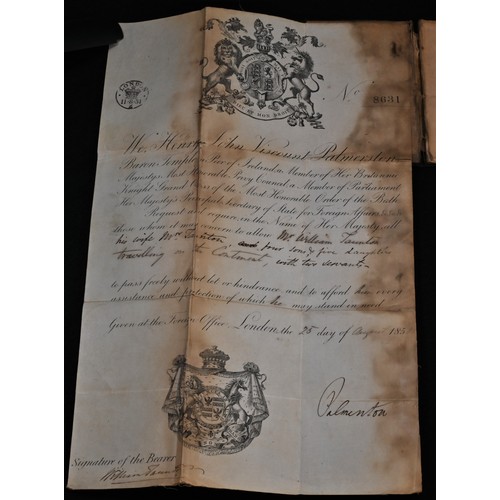 LONDON
No. 8631
We, Henry John Viscount Palmerston
Baron Temple, a Peer of Ireland, a Member of Her Britannic
Majesty's Most Honorable Privy Council, a Member of Parliament
Knight Grand Cross of the Most Honorable Order of the Bath
Her Majesty's Principal Secretary of State for Foreign Affairs
Request and require in the Name of Her Majesty, all
those whom it may concern to allow Mr. William
his wife Mrs and four sons & five daughters
travelling on the Continent, with two servants
to pass freely without let or hindrance, and to afford every
assistance and protection of which he may stand in need.
Given at the Foreign Office, London, the 25 day of 185
Palmerston
Signature of the Bearer
William